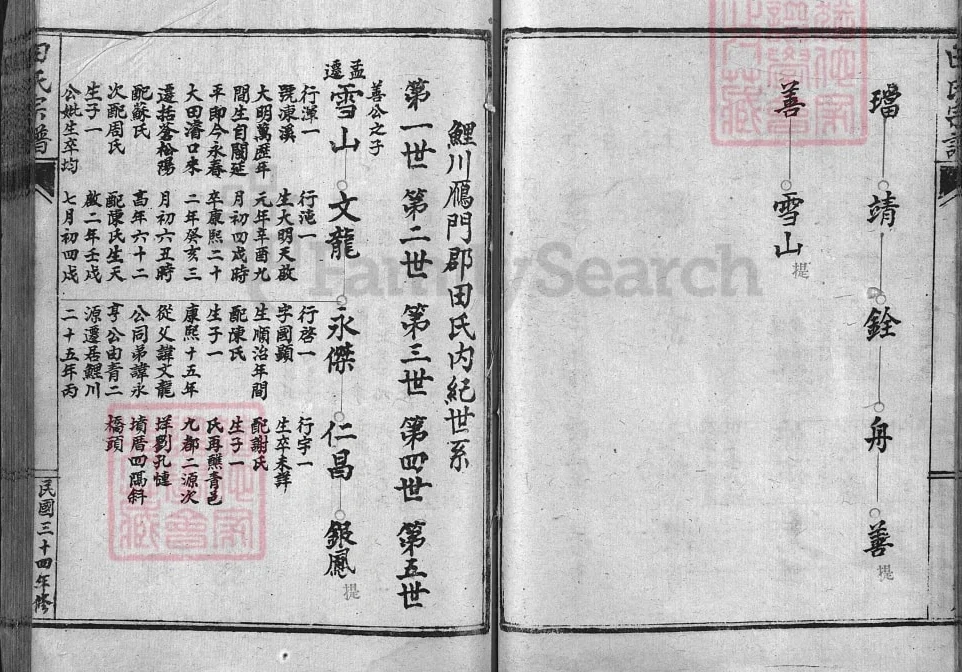 璫 靖 銓 舟 善 提
善 雪山 提
鯉川鴈門郡田氏內紀世系
第一世 第二世 第三世 第四世 第五世
善公之子
孟遷
雪山 文龍 永傑 仁昌 銀鳳 提
行渾一
號凍溪
大明萬歷年
間生自閩延
平即今永春
大田濤口來
遷括蒼松陽
配蘇氏
次配周氏
生子一
公妣生卒均
行沌一
生大明天啟
元年辛酉九
月初四戌時
卒康熙二十
二年癸亥三
月初六丑時
高年六十二
配陳氏生天
啟二年壬戌
七月初四戌
行啓一
字國顯
生順治年間
配陳氏
生子一
康熙十五年
從父諱文龍
公同弟諱永
亨公由青二
源遷居鯉川
二十五年丙
行宇一
生卒未詳
配謝氏
生子一
氏再醮青邑
九都二源次
垟劉孔㥕
墳厝四隔斜
橋頭
田氏宗譜
民國三十四年修
FamilySearch